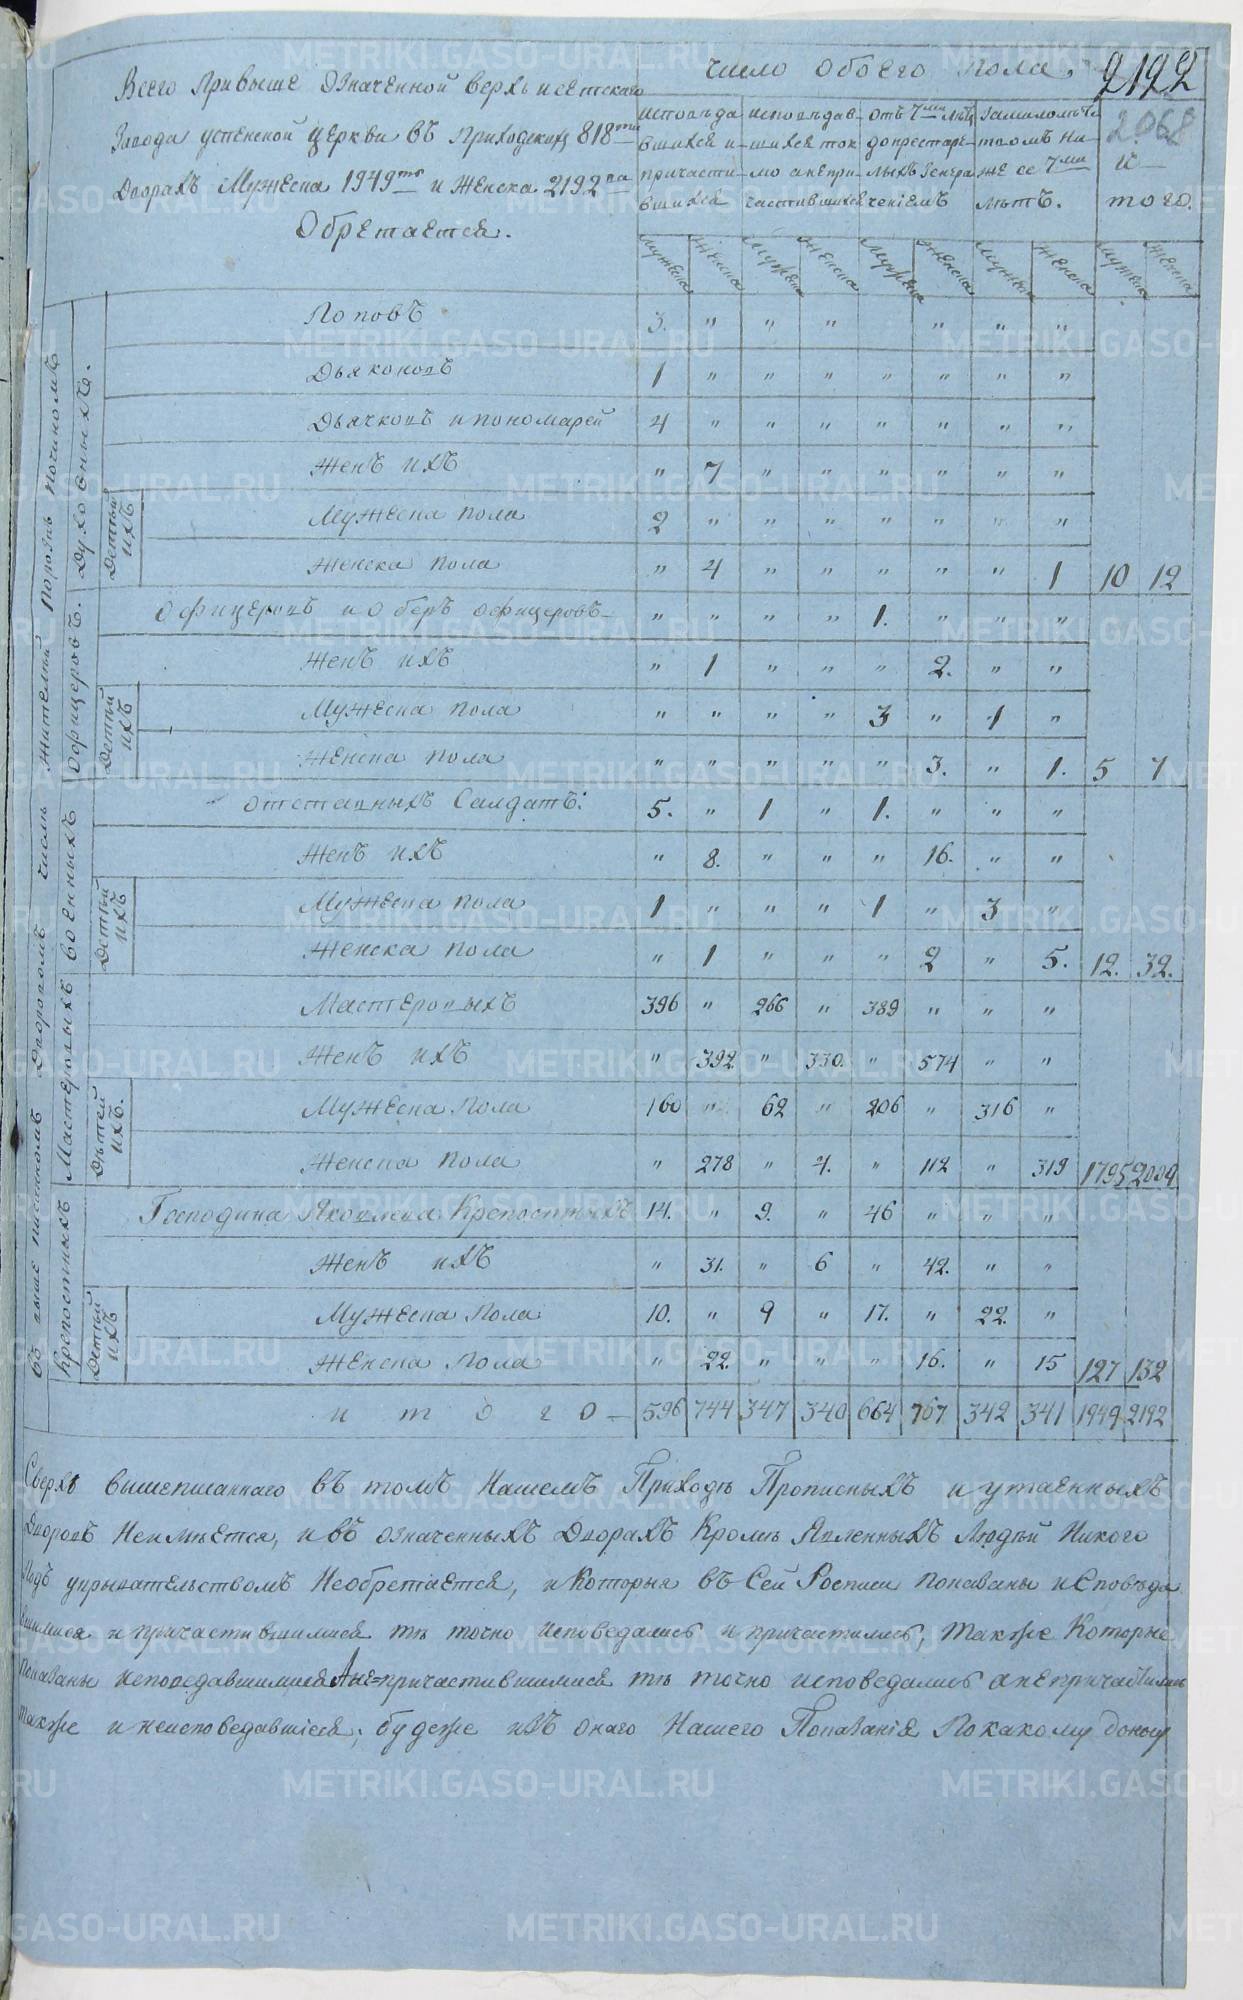 Всего Привыше Означенной Верхъ исетскаго
Завода успенской церкви въ Приходскихъ 818ти
Дворахъ Мужеска 1949ть и Женска 2192ва
Обретается.
число обоего пола.
2192
2068
исповѣда вшихся и причасти вшихся
исповѣдав шихся ток мо а непри частившихся
отъ 7ми лѣтъ до престарѣ лыхъ
за малолѣт ствомъ ни же се 7ми лѣтъ.
и того.
мужеска женска мужеска женска мужеска женска мужеска женска мужеска женска
въ выше писанномъ Дворовомъ числѣ Жителей порознь починомъ
Духовныхъ.
Поповъ 3. " " " " " "
Дьяконовъ 1 " " " " " " "
Дьячковъ и пономарей 4 " " " " " " "
Женъ ихъ " 7 " " " " " "
Детей ихъ
Мужеска пола 2 " " " " " " "
Женска пола " 4 " " " " " 1 10 12
Офицеровъ.
Офицеровъ и Оберъ офицеровъ " " " " 1. " " "
Женъ ихъ " 1 " " " 2. " "
Детей ихъ
Мужеска пола " " " " 3 " 1 "
Женска пола " " " " " 3. " 1. 5 7
военныхъ
отставныхъ Салдатъ: 5. " 1 " 1. " " "
Женъ ихъ " 8. " " " 16. " "
Детей ихъ
Мужеска пола 1 " " " 1 " 3 "
Женска пола " 1 " " " 2 " 5. 12. 32.
Мастеровыхъ
Мастеровыхъ 396 " 266 " 389 " " "
Женъ ихъ " 392 " 330. " 574 " "
Дѣтей ихъ.
Мужеска пола 160 " 62 " 206 " 316 "
Женска пола " 278 " 4. " 112 " 319 1795 2009
Крепостныхъ
Господина Яковлева Крепостныхъ 14. " 9. " 46 " " "
Женъ ихъ " 31. " 6 " 42. " "
Детей ихъ
Мужеска пола 10. " 9 " 17. " 22. "
Женска пола " 22. " " " 16. " 15 127 132
итого — 596 744 347 340 664 767 342 341 1949 2192
Сверхъ вышеписаннаго въ томъ Нашемъ Приходѣ Прописныхъ и утаенныхъ
Дворовъ Неимѣется, и въ означенныхъ Дворахъ Кромѣ Явленныхъ Людѣй Никого
Подъ укрывательствомъ Необретается, и Которыя въ Сей Росписи показаны исповѣда
вшимися и причастившимися тѣ точно исповедались и причастились, также Которые
показаны исповедавшимися Ане=причастившимися тѣ точно исповедались а непричастились
также и неисповедавшіеся; будеже изъ онаго Нашего Показанія По какому доносу